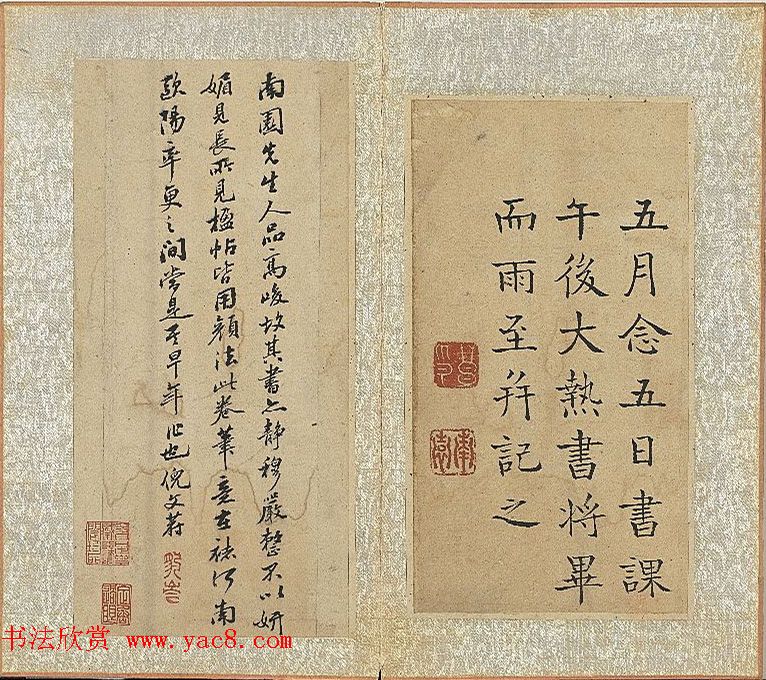 五月念五日書課
午後大熱書將畢
而雨至并記之
南園先生人品高峻故其書亦静穆嚴整不以妍
媚見長所見楹帖皆用顔法此卷筆意在褚河南
歐陽率更之間當是其早年作也倪文蔚
南園
书法欣赏 www.yac8.com